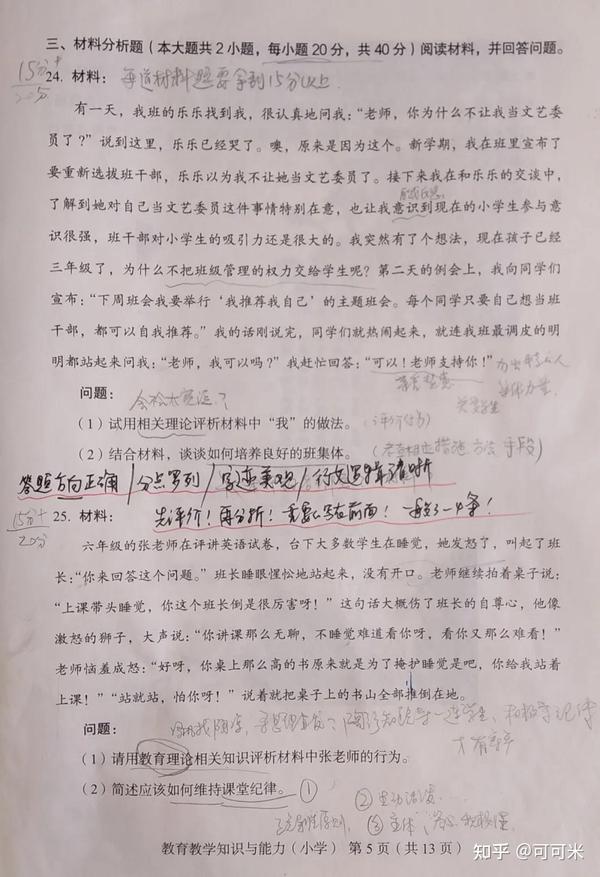 三、材料分析题（本大题共2小题，每小题20分，共40分）阅读材料，并回答问题。
15分+
20分
24. 材料：
每道材料题要拿到15分以上
有一天，我班的乐乐找到我，很认真地问我：“老师，你为什么不让我当文艺委
员了？”说到这里，乐乐已经哭了。噢，原来是因为这个。新学期，我在班里宣布了
要重新选拔班干部，乐乐以为我不让她当文艺委员了。接下来我在和乐乐的交谈中，
了解到她对自己当文艺委员这件事情特别在意，也让我意识到现在的小学生参与意
识很强，班干部对小学生的吸引力还是很大的。我突然有了个想法，现在孩子已经
三年级了，为什么不把班级管理的权力交给学生呢？第二天的例会上，我向同学们
宣布：“下周班会我要举行‘我推荐我自己’的主题班会。每个同学只要自己想当班
干部，都可以自我推荐。”我的话刚说完，同学们就热闹起来，就连我班最调皮的明
明都站起来问我：“老师，我可以吗？”我赶忙回答：“可以！老师支持你！”
问题：
（1）试用相关理论评析材料中“我”的做法。
（2）结合材料，谈谈如何培养良好的班集体。
答题方向正确/分点罗列/字迹美观/行文逻辑清晰
15分+
20分
25. 材料：
先评价！再分析！重要的写在前面！
六年级的张老师在评讲英语试卷，台下大多数学生在睡觉，她发怒了，叫起了班
长：“你来回答这个问题。”班长睡眼惺忪地站起来，没有开口。老师继续拍着桌子说：
“上课带头睡觉，你这个班长倒是很厉害呀！”这句话大概伤了班长的自尊心，他像
激怒的狮子，大声说：“你讲课那么无聊，不睡觉难道看你呀，看你又那么难看！”
老师恼羞成怒：“好呀，你桌上那么高的书原来就是为了掩护睡觉是吧，你给我站着
上课！”“站就站，怕你呀！”说着就把桌子上的书山全部推倒在地。
问题：
（1）请用教育理论相关知识评析材料中张老师的行为。
（2）简述应该如何维持课堂纪律。
①
②生动活泼
教育教学知识与能力（小学） 第5页（共13页）
知乎 @可可米